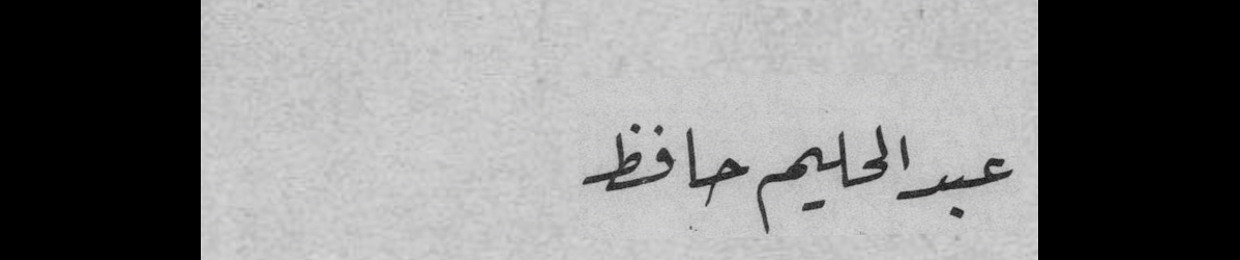 عبد الحليم حافظ